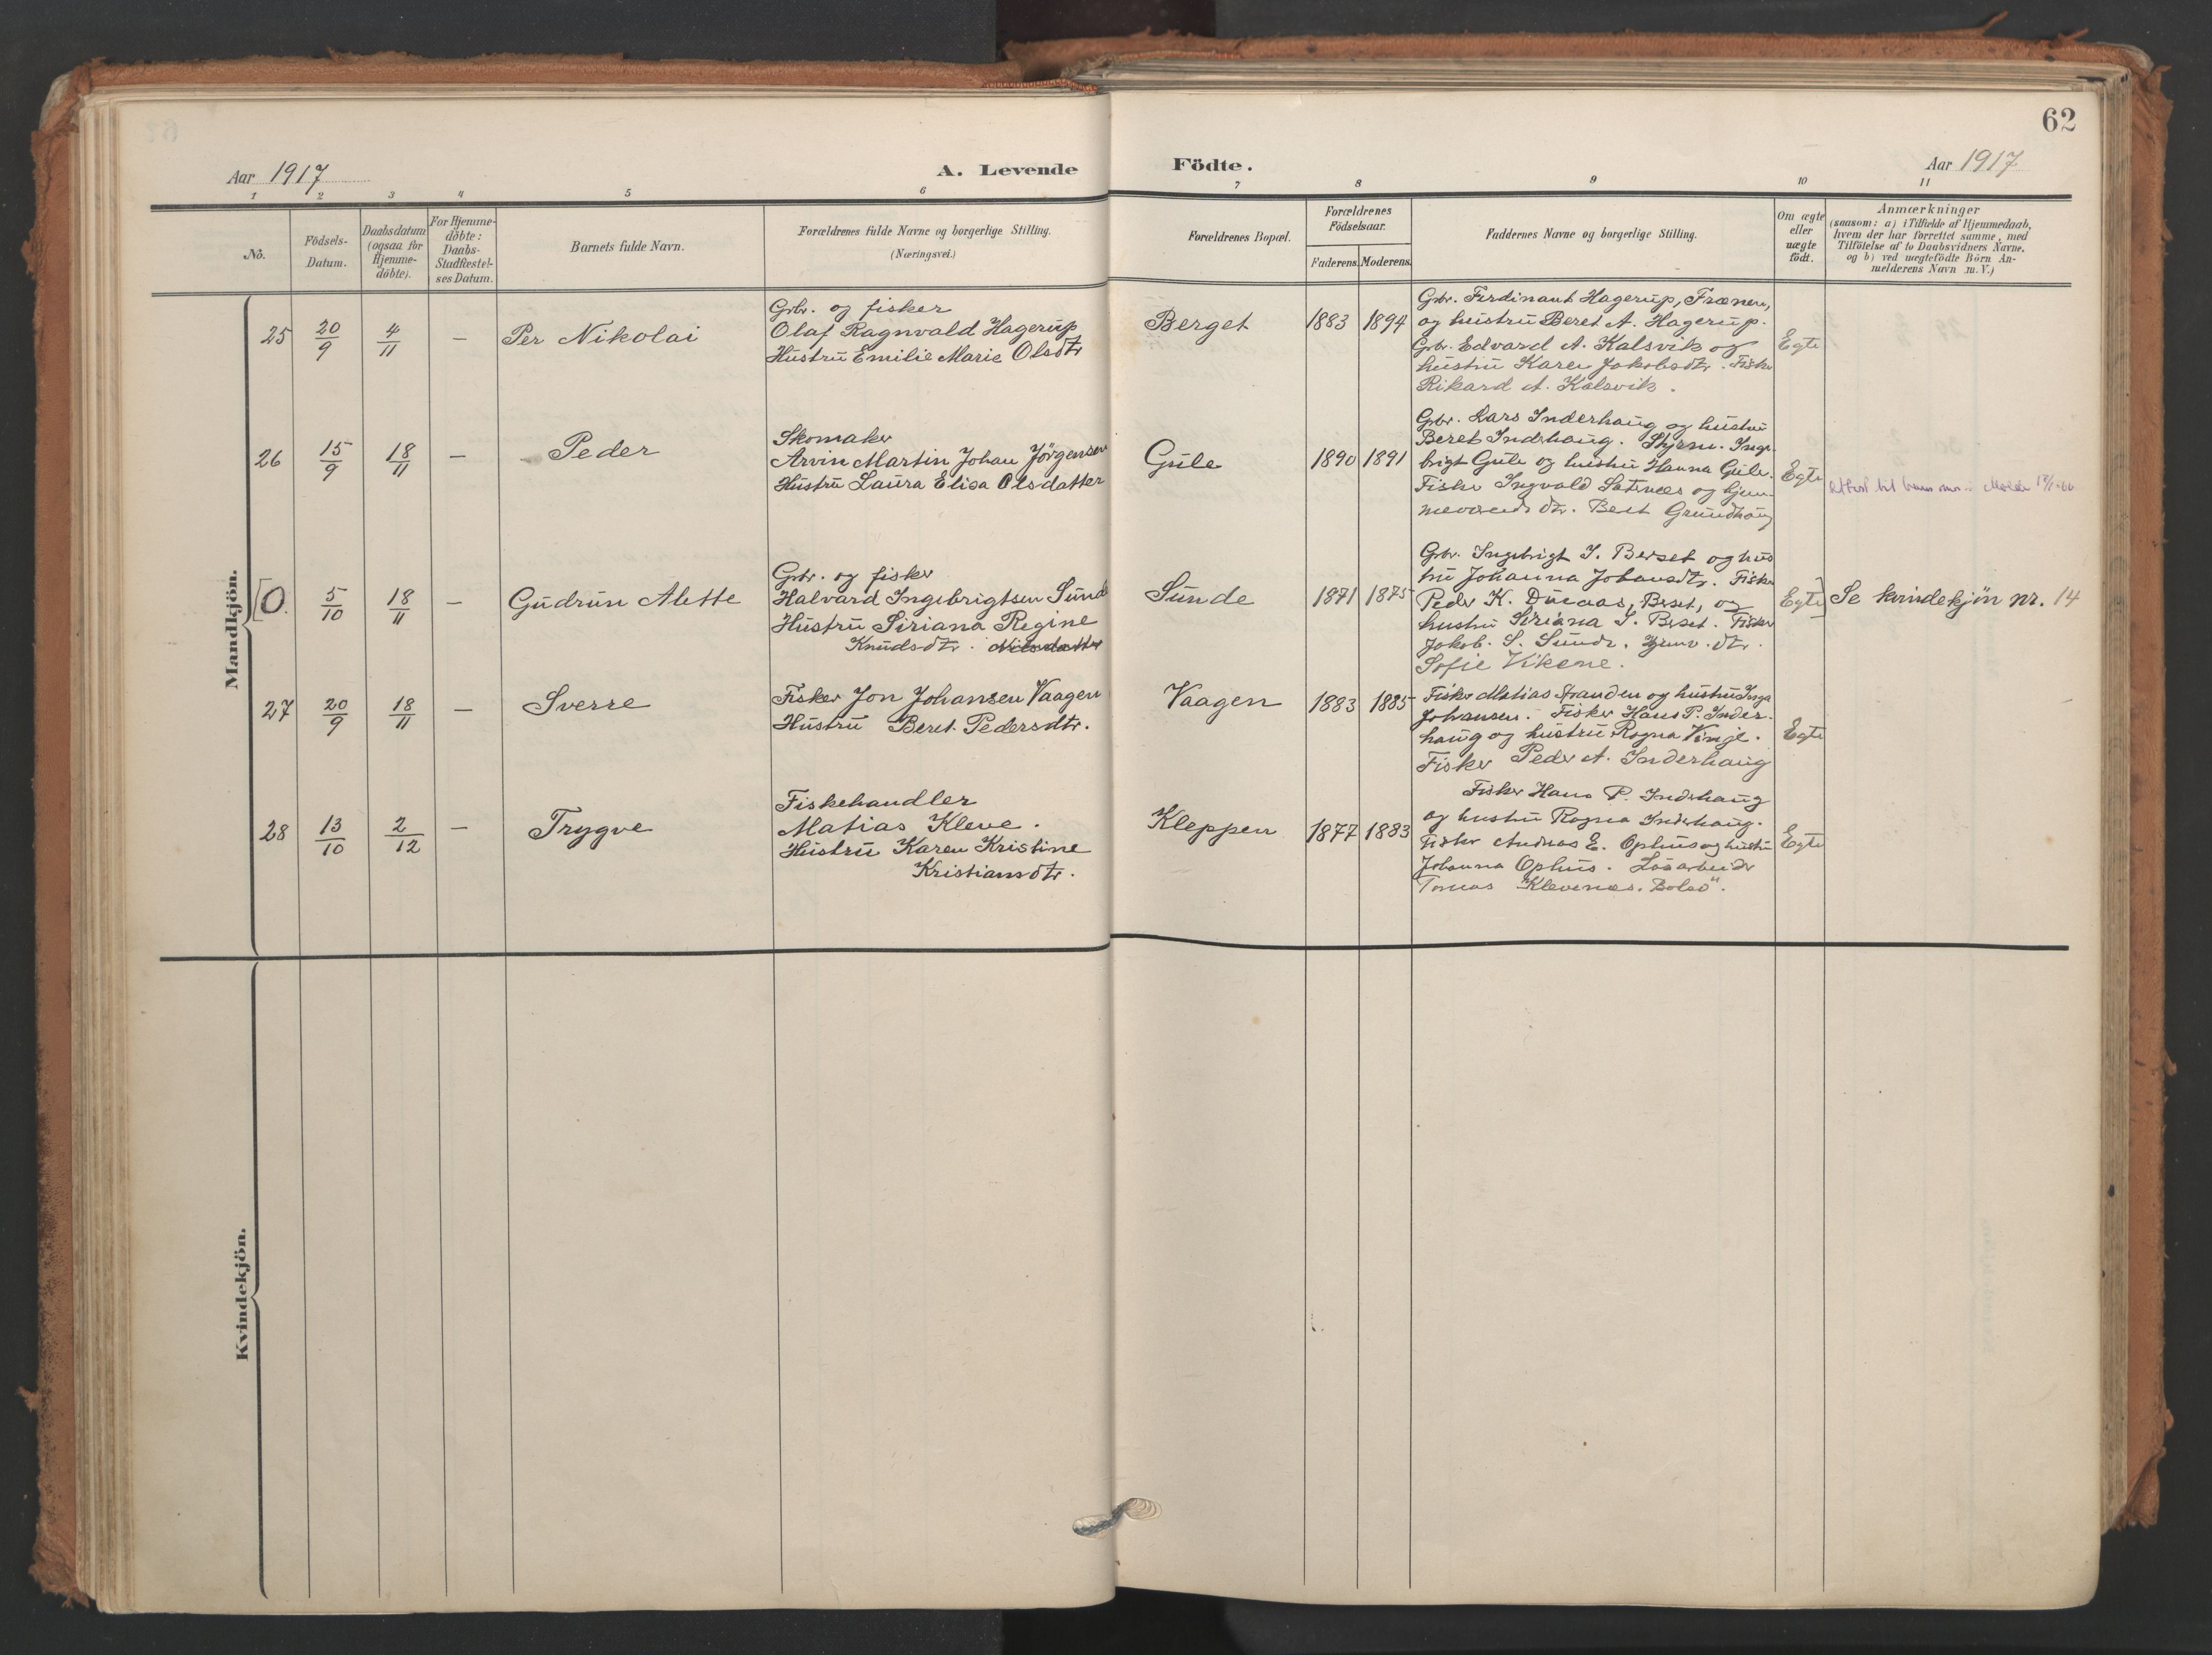 62
Aar 1917
A. Levende
Födte.
Aar 1917
1 2 3 4 5 6 7 8 9 10 11
No.
Födsels-
Datum.
Daabsdatum
(ogsaa for
Hjemme-
döbte).
For Hjemme-
döbte:
Daabs-
Stadfæstel-
ses Datum.
Barnets fulde Navn.
Forældrenes fulde Navne og borgerlige Stilling.
(Næringsvei.)
Forældrenes Bopæl.
Forældrenes
Födselsaar.
Faderens. Moderens.
Faddernes Navne og borgerlige Stilling.
Om ægte
eller
uægte
födt.
Anmærkninger
(saasom: a) i Tilfælde af Hjemmedaab,
hvem der har forrettet samme, med
Tilföielse af to Daabsvidners Navne.
og b) ved uægtefödte Börn An-
melderens Navn m. V.)
Mandkjön.
25 20/9 4/11 — Per Nikolai
Grbr. og fisker
Olaf Ragnvald Hagerup
Hustru Emilie Marie Olsdtr
Berget 1883 1894
Grbr. Ferdinant Hagerup, Frænen,
og hustru Beret A. Hagerup.
Grbr. Edvard A. Kalsvik og
hustru Karen Jakobsdtr. Fisker
Rikard A. Kalsvik.
Egte
26 15/9 18/11 — Peder
Skomaker
Arvin Martin Johan Jörgensen
Hustru Laura Elisa Olsdatter
Gule 1890 1891
Grbr. Lars Inderhaug og hustru
Beret Inderhaug. Styrm. Inge-
brigt Gule og hustru Hanna Gule.
Fisker Ingvald Sætnes og hjem-
meværende dtr. Beret Grundhaug
Egte
[0. 5/10 18/11 — Gudrun Alette
Grbr. og fisker
Halvard Ingebrigtsen Sunde
Hustru Siriana Regine
Knudsdtr. Nilsdatter
Sunde 1871 1875
Grbr. Ingebrigt I. Berset og hus
tru Johanna Johansdtr. Fisker
Peder K. Duaas, Berset, og
hustru Siriana I. Berset. Fisker
Jakob. S. Sunde. Hjemv. dtr.
Sofie Vikene.
Egte] Se kvindekjön nr. 14
27 20/9 18/11 — Sverre
Fisker Jon Johansen Vaagen
Hustru Beret Pedersdtr.
Vaagen 1883 1885
Fisker Matias Stranden og hustru Inga
Johansen. Fisker Hans P. Inder-
haug og hustru Ragna Vinje.
Fisker Peder A. Inderhaug
Egte
28 13/10 2/12 — Trygve
Fiskehandler
Matias Kleve.
Hustru Karen Kristine
Kristiansdtr.
Kleppen 1877 1883
Fisker Hans P. Inderhaug
og hustru Ragna Inderhaug.
Fisker Andreas E. Ophus og hustru
Johanna Ophus. Lösarbeider
Tomas Klevenæs. Bolsö".
Egte
Kvindekjön.